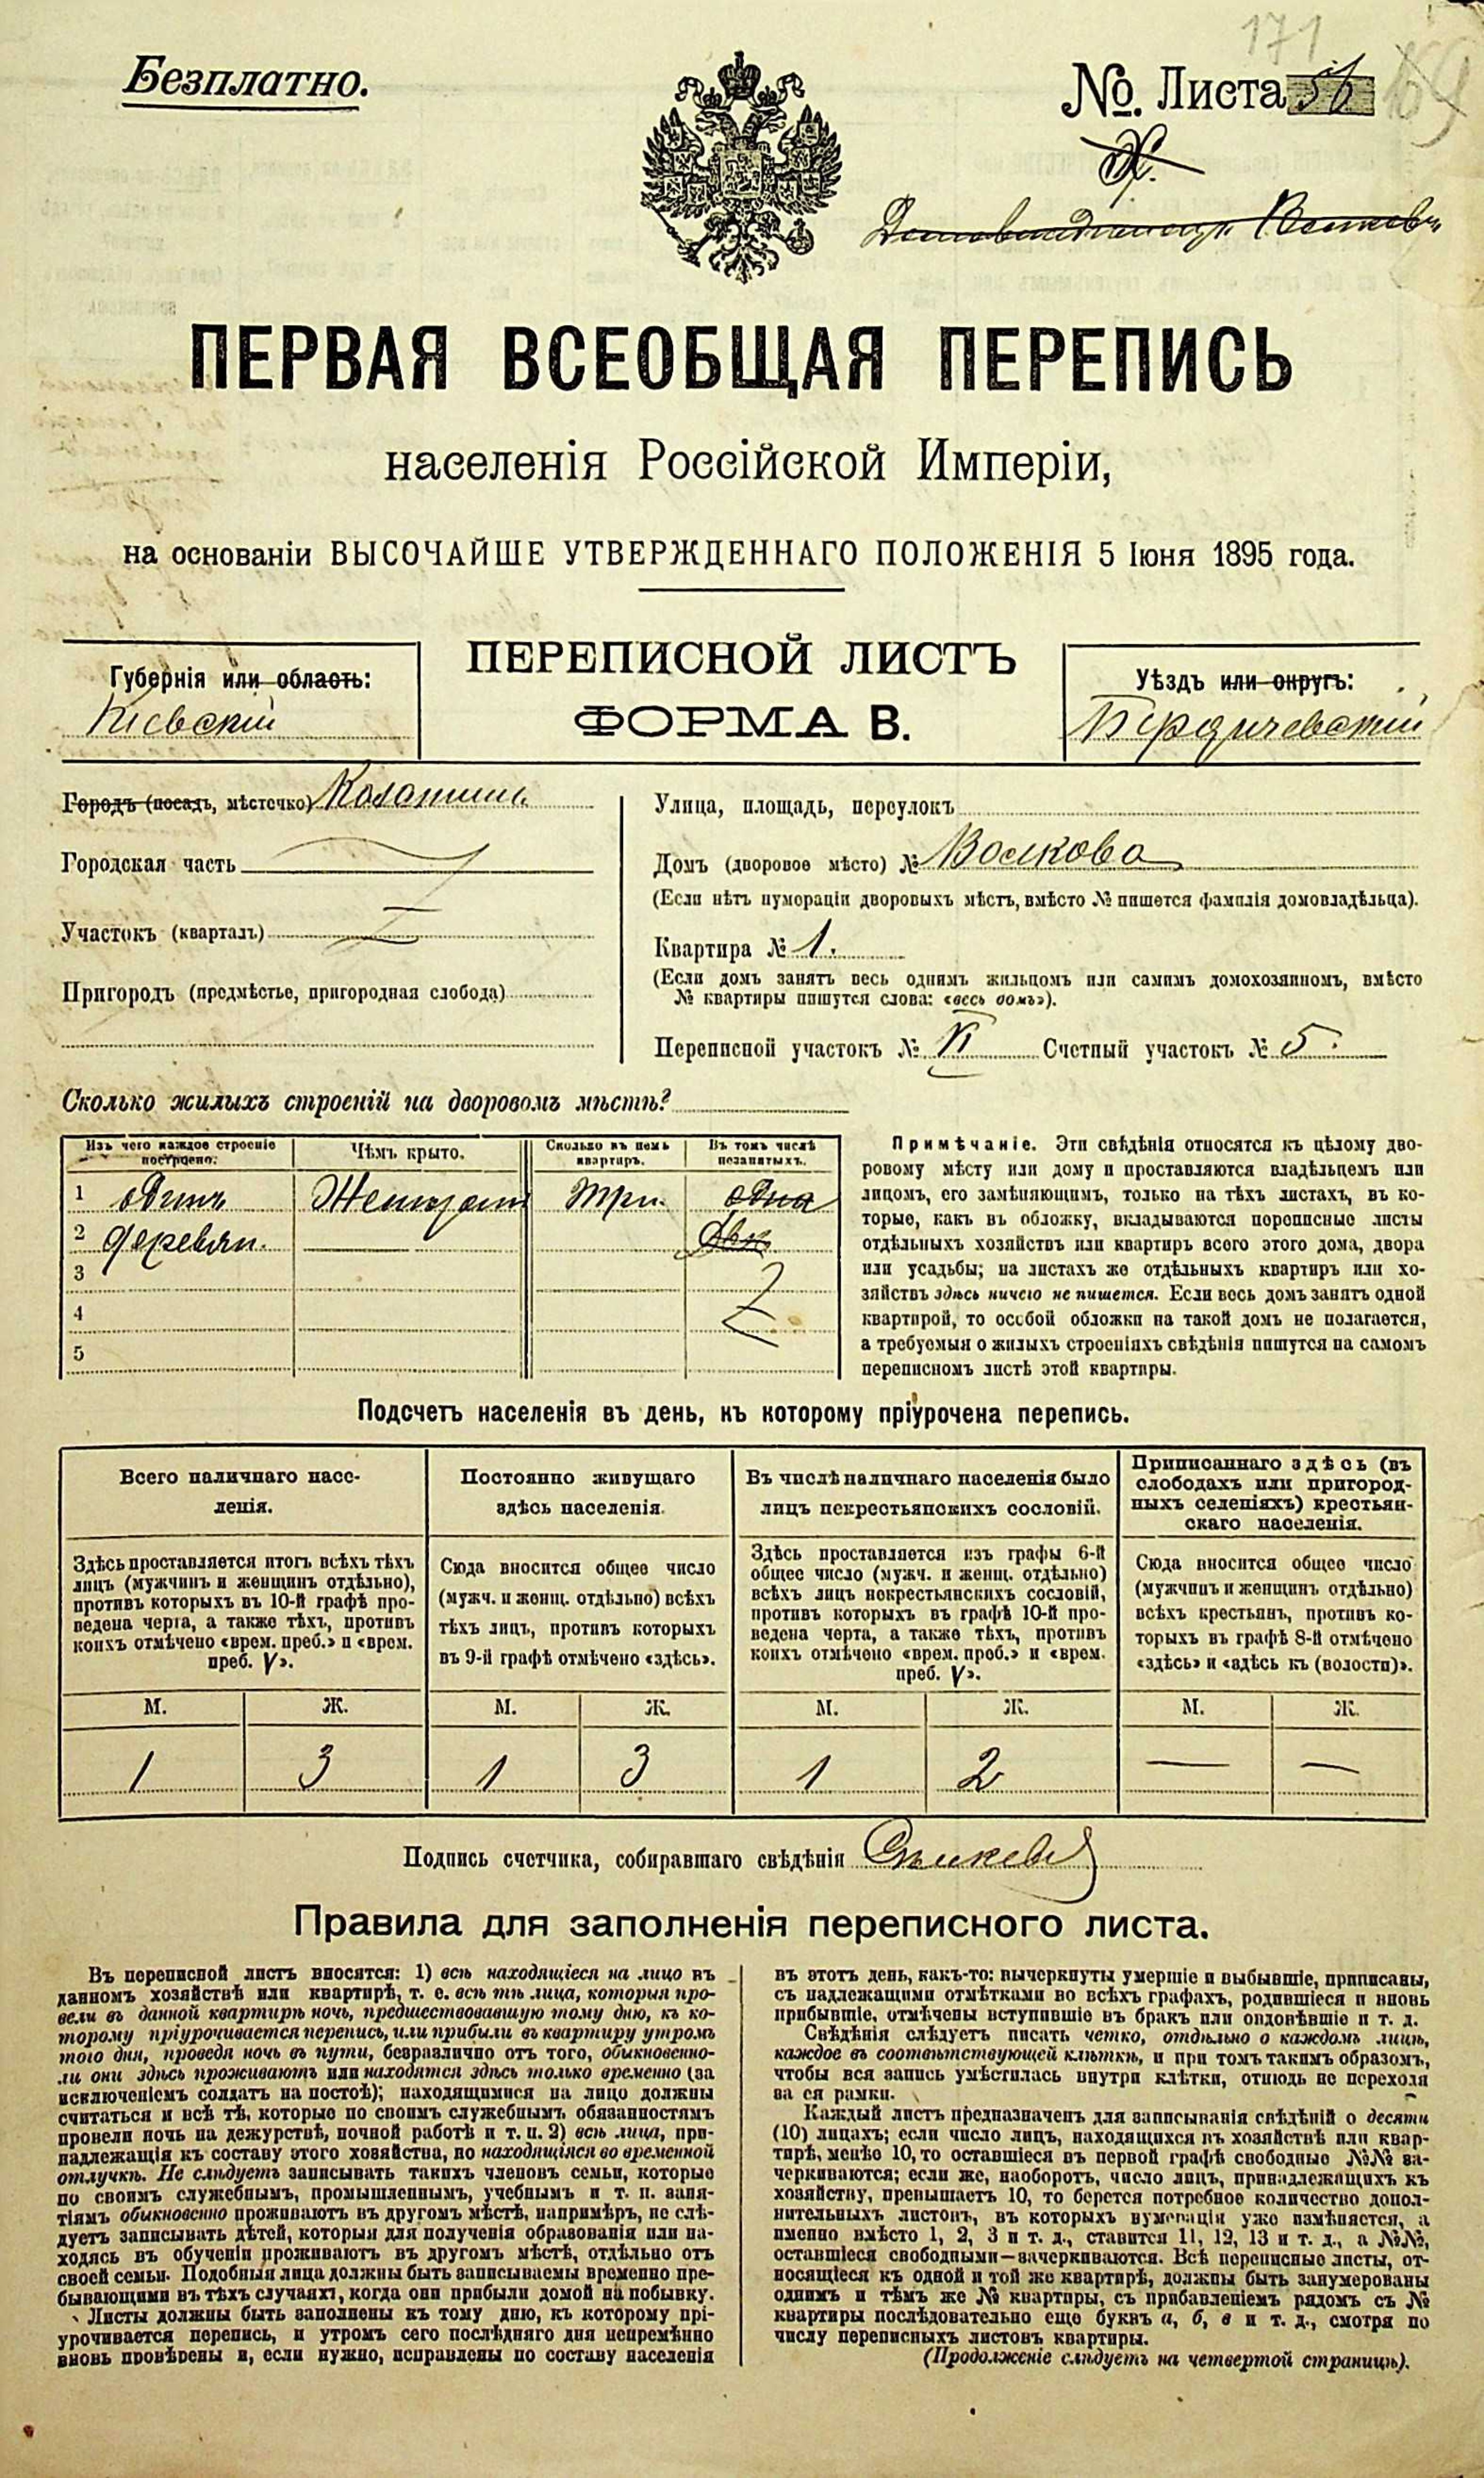 171
Безплатно.
№. Листа 56
169
ПЕРВАЯ ВСЕОБЩАЯ ПЕРЕПИСЬ
населенія Россійской Имперіи,
на основаніи ВЫСОЧАЙШЕ УТВЕРЖДЕННАГО ПОЛОЖЕНІЯ 5 Іюня 1895 года.
ПЕРЕПИСНОЙ ЛИСТЪ
ФОРМА В.
Губернія или область:
Кіевскій
Уѣздъ или округъ:
Бердичевскій
Городъ (посадъ, мѣстечко) Казатинъ
Городская часть
Участокъ (кварталъ)
Пригородъ (предмѣстье, пригородная слобода)
Улица, площадь, переулокъ
Домъ (дворовое мѣсто) № Волкова
(Если нѣтъ нумераціи дворовыхъ мѣстъ, вмѣсто № пишется фамилія домовладѣльца).
Квартира № 1.
(Если домъ занятъ весь однимъ жильцомъ или самимъ домохозяиномъ, вмѣсто
№ квартиры пишутся слова: «весь домъ»).
Переписной участокъ № VI Счетный участокъ № 5.
Сколько жилыхъ строеній на дворовомъ мѣстѣ?
Изъ чего каждое строеніе
построено.
Чѣмъ крыто.
Сколько въ немъ
квартиръ.
Въ томъ числѣ
незанятыхъ.
1 одинъ Желѣзомъ три. одна
2 деревян. двѣ
3
4
5
Примѣчаніе. Эти свѣдѣнія относятся къ цѣлому дво-
ровому мѣсту или дому и проставляются владѣльцемъ или
лицомъ, его замѣняющимъ, только на тѣхъ листахъ, въ ко-
торые, какъ въ обложку, вкладываются переписные листы
отдѣльныхъ хозяйствъ или квартиръ всего этого дома, двора
или усадьбы; на листахъ же отдѣльныхъ квартиръ или хо-
зяйствъ здѣсь ничего не пишется. Если весь домъ занятъ одной
квартирой, то особой обложки на такой домъ не полагается,
а требуемыя о жилыхъ строеніяхъ свѣдѣнія пишутся на самомъ
переписномъ листѣ этой квартиры.
Подсчетъ населенія въ день, къ которому пріурочена перепись.
Всего наличнаго насе-
ленія.
Здѣсь проставляется итогъ всѣхъ тѣхъ
лицъ (мужчинъ и женщинъ отдѣльно),
противъ которыхъ въ 10-й графѣ про-
ведена черта, а также тѣхъ, противъ
коихъ отмѣчено «врем. преб.» и «врем.
преб. V».
Постоянно живущаго
здѣсь населенія.
Сюда вносится общее число
(мужч. и женщ. отдѣльно) всѣхъ
тѣхъ лицъ, противъ которыхъ
въ 9-й графѣ отмѣчено «здѣсь».
Въ числѣ наличнаго населенія было
лицъ некрестьянскихъ сословій.
Здѣсь проставляется изъ графы 6-й
общее число (мужч. и женщ. отдѣльно)
всѣхъ лицъ некрестьянскихъ сословій,
противъ которыхъ въ графѣ 10-й про-
ведена черта, а также тѣхъ, противъ
коихъ отмѣчено «врем. преб.» и «врем.
преб. V».
Приписаннаго здѣсь (въ
слободахъ или пригород-
ныхъ селеніяхъ) крестьян-
скаго населенія.
Сюда вносится общее число
(мужчинъ и женщинъ отдѣльно)
всѣхъ крестьянъ, противъ ко-
торыхъ въ графѣ 8-й отмѣчено
«здѣсь» и «здѣсь къ (волости)».
М. Ж. М. Ж. М. Ж. М. Ж.
1 3 1 3 1 2 — —
Подпись счетчика, собиравшаго свѣдѣнія
Правила для заполненія переписного листа.
Въ переписной листъ вносятся: 1) всѣ находящіеся на лицо въ
данномъ хозяйствѣ или квартирѣ, т. е. всѣ тѣ лица, которыя про-
вели въ данной квартирѣ ночь, предшествовавшую тому дню, къ ко-
торому пріурочивается перепись, или прибыли въ квартиру утромъ
того дня, проведя ночь въ пути, безразлично отъ того, обыкновенно-
ли они здѣсь проживаютъ или находятся здѣсь только временно (за
исключеніемъ солдатъ на постоѣ); находящимися на лицо должны
считаться и всѣ тѣ, которые по своимъ служебнымъ обязанностямъ
провели ночь на дежурствѣ, ночной работѣ и т. п. 2) всѣ лица, при-
надлежащія къ составу этого хозяйства, но находящіяся во временной
отлучкѣ. Не слѣдуетъ записывать такихъ членовъ семьи, которые
по своимъ служебнымъ, промышленнымъ, учебнымъ и т. п. заня-
тіямъ обыкновенно проживаютъ въ другомъ мѣстѣ, напримѣръ, не слѣ-
дуетъ записывать дѣтей, которыя для полученія образованія или на-
ходясь въ обученіи проживаютъ въ другомъ мѣстѣ, отдѣльно отъ
своей семьи. Подобныя лица должны быть записываемы временно пре-
бывающими въ тѣхъ случаяхъ, когда они прибыли домой на побывку.
Листы должны быть заполнены къ тому дню, къ которому прі-
урочивается перепись, и утромъ сего послѣдняго дня непремѣнно
вновь провѣрены и, если нужно, исправлены по составу населенія
въ этотъ день, какъ-то: вычеркнуты умершіе и выбывшіе, приписаны,
съ надлежащими отмѣтками во всѣхъ графахъ, родившіеся и вновь
прибывшіе, отмѣчены вступившіе въ бракъ или овдовѣвшіе и т. д.
Свѣдѣнія слѣдуетъ писать четко, отдѣльно о каждомъ лицѣ,
каждое въ соотвѣтствующей клѣткѣ, и при томъ такимъ образомъ,
чтобы вся запись умѣстилась внутри клѣтки, отнюдь не переходя
за ея рамки.
Каждый листъ предназначенъ для записыванія свѣдѣній о десяти
(10) лицахъ; если число лицъ, находящихся въ хозяйствѣ или квар-
тирѣ, менѣе 10, то оставшіеся въ первой графѣ свободные №№ за-
черкиваются; если же, наоборотъ, число лицъ, принадлежащихъ къ
хозяйству, превышаетъ 10, то берется потребное количество допол-
нительныхъ листовъ, въ которыхъ нумерація уже измѣняется, а
именно вмѣсто 1, 2, 3 и т. д., ставится 11, 12, 13 и т. д., а №№,
оставшіеся свободными—зачеркиваются. Всѣ переписные листы, от-
носящіеся къ одной и той же квартирѣ, должны быть занумерованы
однимъ и тѣмъ же № квартиры, съ прибавленіемъ рядомъ съ №
квартиры послѣдовательно еще буквъ а, б, в и т. д., смотря по
числу переписныхъ листовъ квартиры.
(Продолженіе слѣдуетъ на четвертой страницѣ).